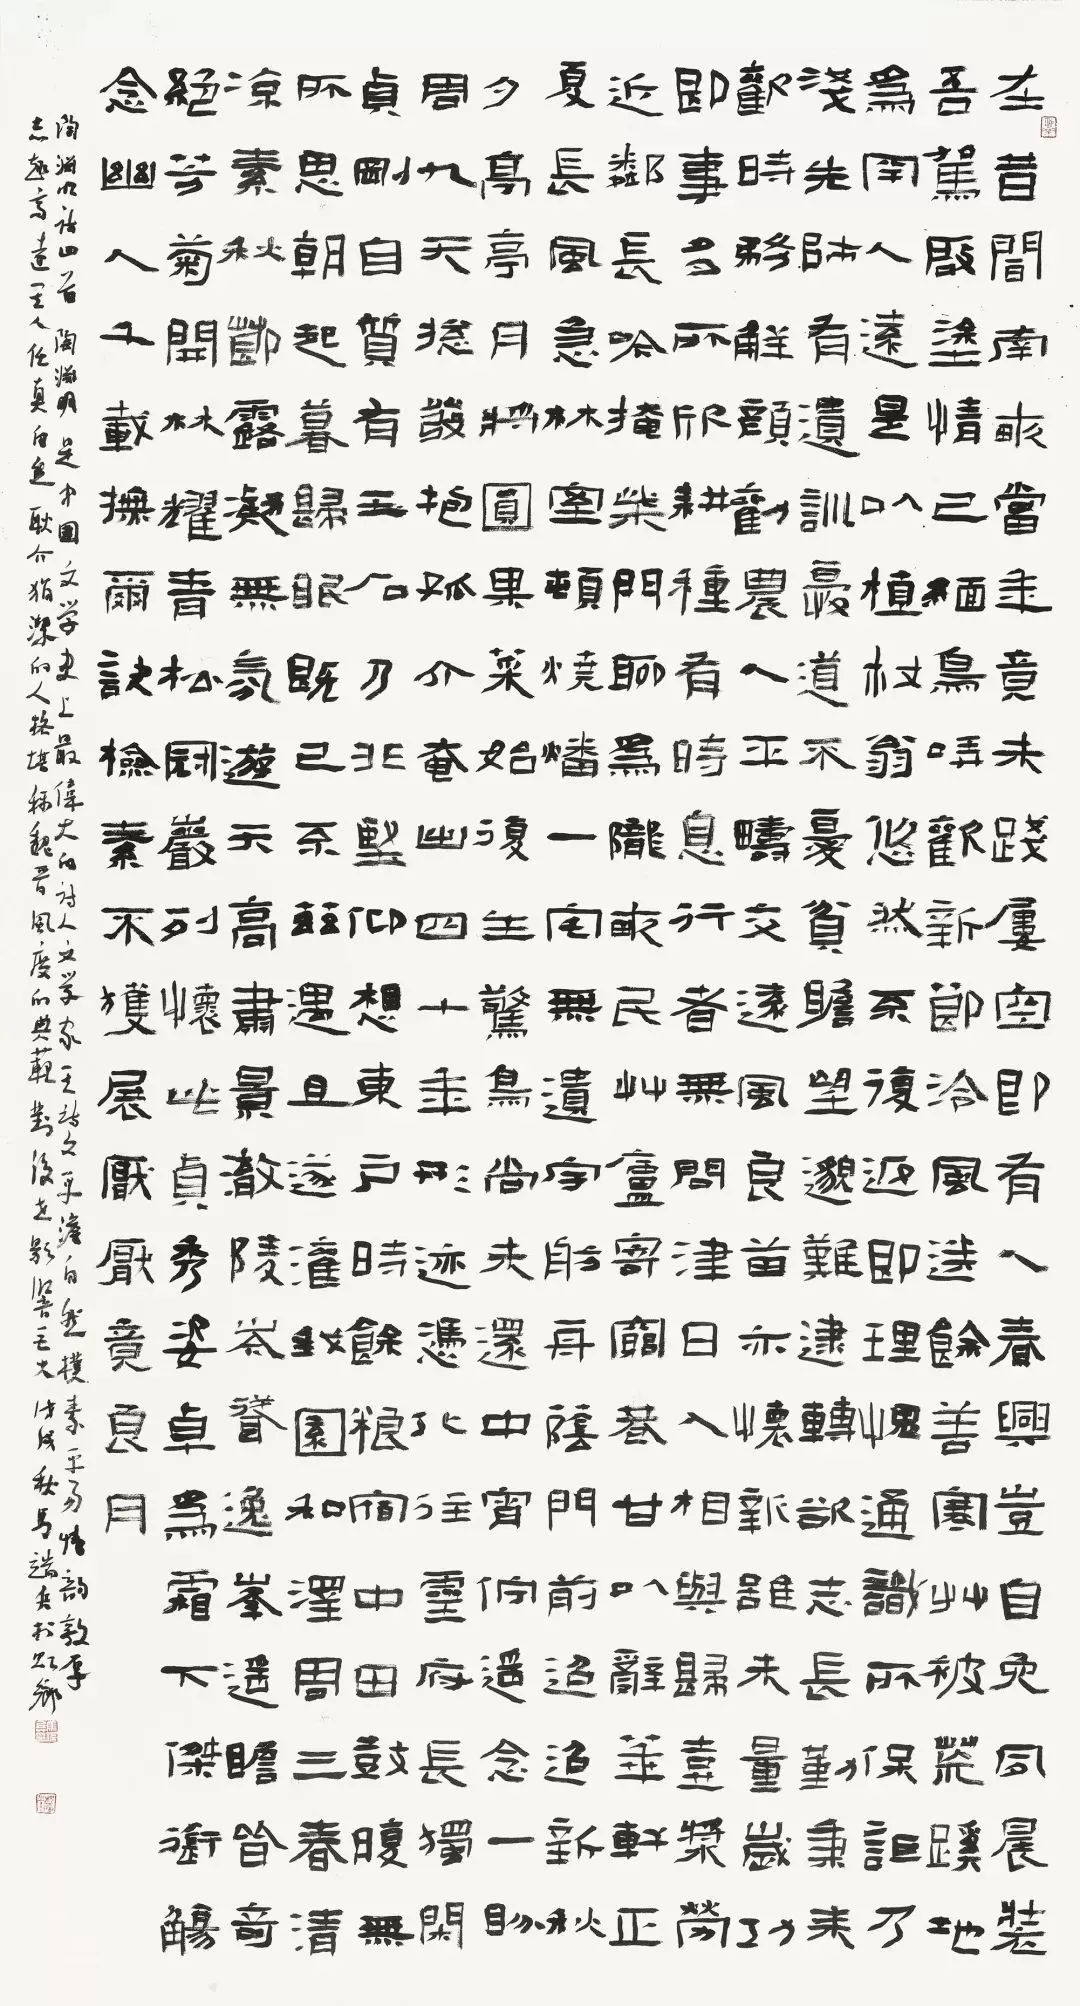 在昔聞南畝當年竟未踐屢空即有人春興豈自免夙晨裝
吾駕啟塗情已緬鳥哢歡新節泠風送餘善寒艸被荒蹊地
為罔人遠是以植杖翁悠然不復返即理愧通識所保詎乃
淺先師有遺訓憂道不憂貧瞻望邈難逮轉欲志長勤秉耒
歡時務解顏勸農人平疇交遠風良苗亦懷新雖未量歲功
即事多所欣耕種有時息行者無問津日入相與歸壺漿勞
近鄰長吟掩柴門聊為隴畝民艸廬寄窮巷甘以辭華軒正
夏長風急林室頓燒燔一宅無遺宇舫舟蔭門前迢迢新秋
夕亭亭月將圓果菜始復生驚鳥尚未還中宵佇遙念一盼
周九天總髮抱孤介奄出四十年形迹憑化往靈府長獨閑
貞剛自質有玉石乃非堅仰想東戶時餘糧宿中田鼓腹無
所思朝起暮歸眠既已不茲遇且遂灌我園和澤周三春清
涼素秋節露凝無氛遊天高肅景澈陵岑聳逸峯遙瞻皆奇
絕芳菊開林耀青松冠巖列懷此貞秀姿卓為霜下傑銜觴
念幽人千載撫爾訣檢素不獲展厭厭竟良月
陶淵明詩四首 陶淵明是中國文學史上最偉大的詩人文學家其詩文平澹自然樸素平易情韵敦厚
志趣高遠其人任真自逸耿介狷潔的人格堪稱魏晉風度的典範對後世影響巨大 戊戌秋馬端兵於